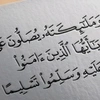 وَمَلَٰٓئِكَتَهُۥ يُصَلُّونَ
يَٰٓأَيُّهَا ٱلَّذِينَ ءَامَنُوا۟
عَلَيْهِ وَسَلِّمُوا۟ تَسْلِيمًا